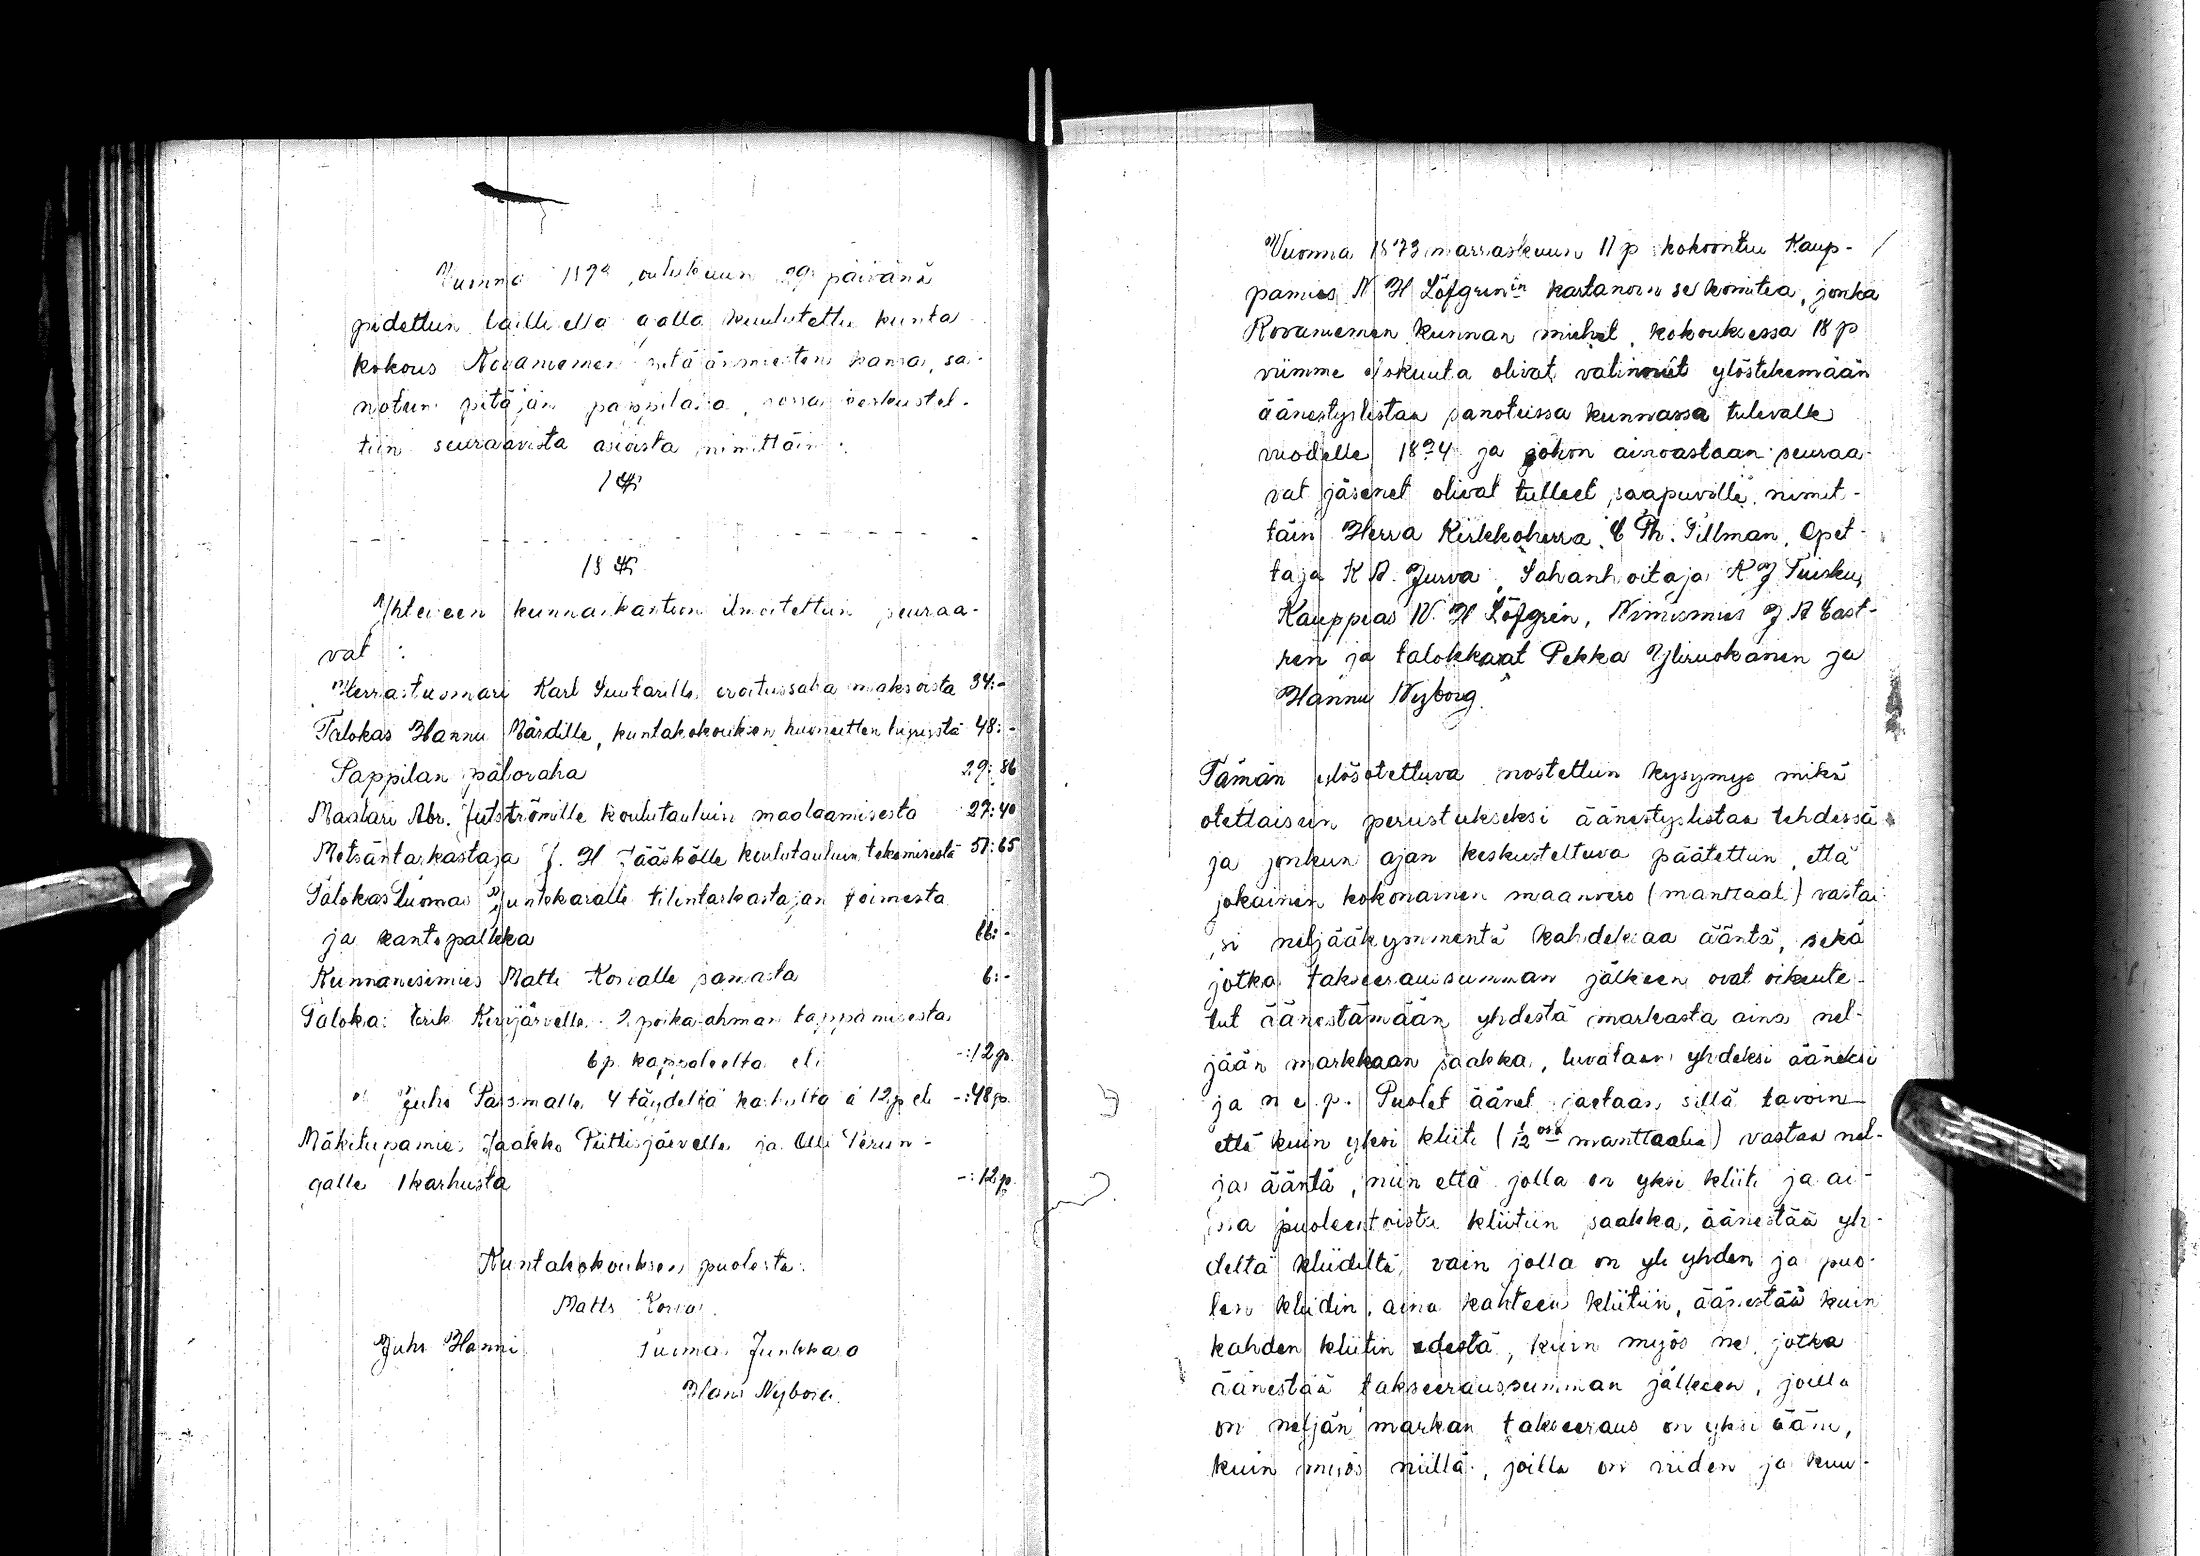 Vuonna 187 joulukuun 29 päivänä
pidettiin laillisella ajalla kuulutettu kunta
kokous Rovaniemen pitäjänmiesten kansa, sa-
notun pitäjän pappilassa, jossa keskustel-
tiin seuraavista asioista nimittäin:
1 §
- - - - - - - - - - - -
18 §
Yhteiseen kunnankantoon ilmoitettiin seuraa-
vat :
Herrastuomari Karl Suutarille, maksoista 34:-
Talokas Hannu Mårdille, kuntakokouksen huoneitten 48:-
Pappilan paloraha 29:86
Maalari Abr. koulutauluin maalaamisesta 27:40
Metsäntarkastaja J. H Jääskölle koulutauluin tekemisestä 57:65
Talokas Tuomas Junkkaralle tilintarkastajan toimesta
ja kantopalkka 66:-
Kunnanesimies Matti Korvalle samasta 6:-
Talokas Erik Kivijärvelle 2 poika ahman tappamisesta
6 p. kappaleelta eli -:12 p.
" Juho Paismalle 4 täydeltä karhulta á 12 p eli -:48 p.
Mäkitupamies Jaakko Piittisjärvelle ja Olli Perun-
galle 1 karhusta -:12 p.
Kuntakokouksen puolesta:
Matts Korva.
Juho Hanni Tuomas Junkkara
Hans Nyborg.
Vuonna 1873 marraskuun 11 p kokoontui Kaup-
pamies N H Löfgren in kartanoon se komitea, jonka
Rovaniemen kunnan miehet, kokouksessa 18 p
viimme elokuuta olivat valinneet ylöstekemään
äänestyslistaa sanotussa kunnassa tulevalle
vuodelle 1874 ja johon ainoastaan seuraa-
vat jäsenet olivat tulleet saapuville, nimit-
täin Herra Kirkkoherra C Th. Tillman, Opet-
taja K A. Jurva, Sahanhoitaja K J Tuisku,
Kauppias N. H Löfgren, Nimismies J A Cast-
ren ja talokkaat Pekka Yliruokanen ja
Hannu Nyborg.
Tämän ylösotettuva nostettiin kysymys mikä
otettaisiin perustukseksi äänestyslistaa tehdessä
ja jonkun ajan keskusteltuva päätettiin, että
jokainen kokonainen maanvero (manttaali) vastai-
si neljääkymmentä kahdeksaa ääntä, sekä
jotka takseeraussumman jälkeen ovat oikeute-
tut äänestämään yhdestä markasta aina nel-
jään markkaan saakka, luvataan yhdeksi ääneksi
ja n e. p. Puolet äänet jaetaan sillä tavoin
että kuin yksi kliiti (1/12 osa manttaalia) vastaa nel-
jä ääntä, niin että jolla on yksi kliiti ja ai-
na puoleentoista kliitiin saakka, äänestää yh-
deltä kliidiltä, vain jolla on yli yhden ja puo-
len kliidin, aina kahteen kliitiin, äänestää kuin
kahden kliitin edestä, kuin myös ne, jotka
äänestää takseeraussumman jälkeen, joilla
on neljän markan takseeraus on yksi ääni,
kuin myös niillä, joilla on viiden ja kuu-